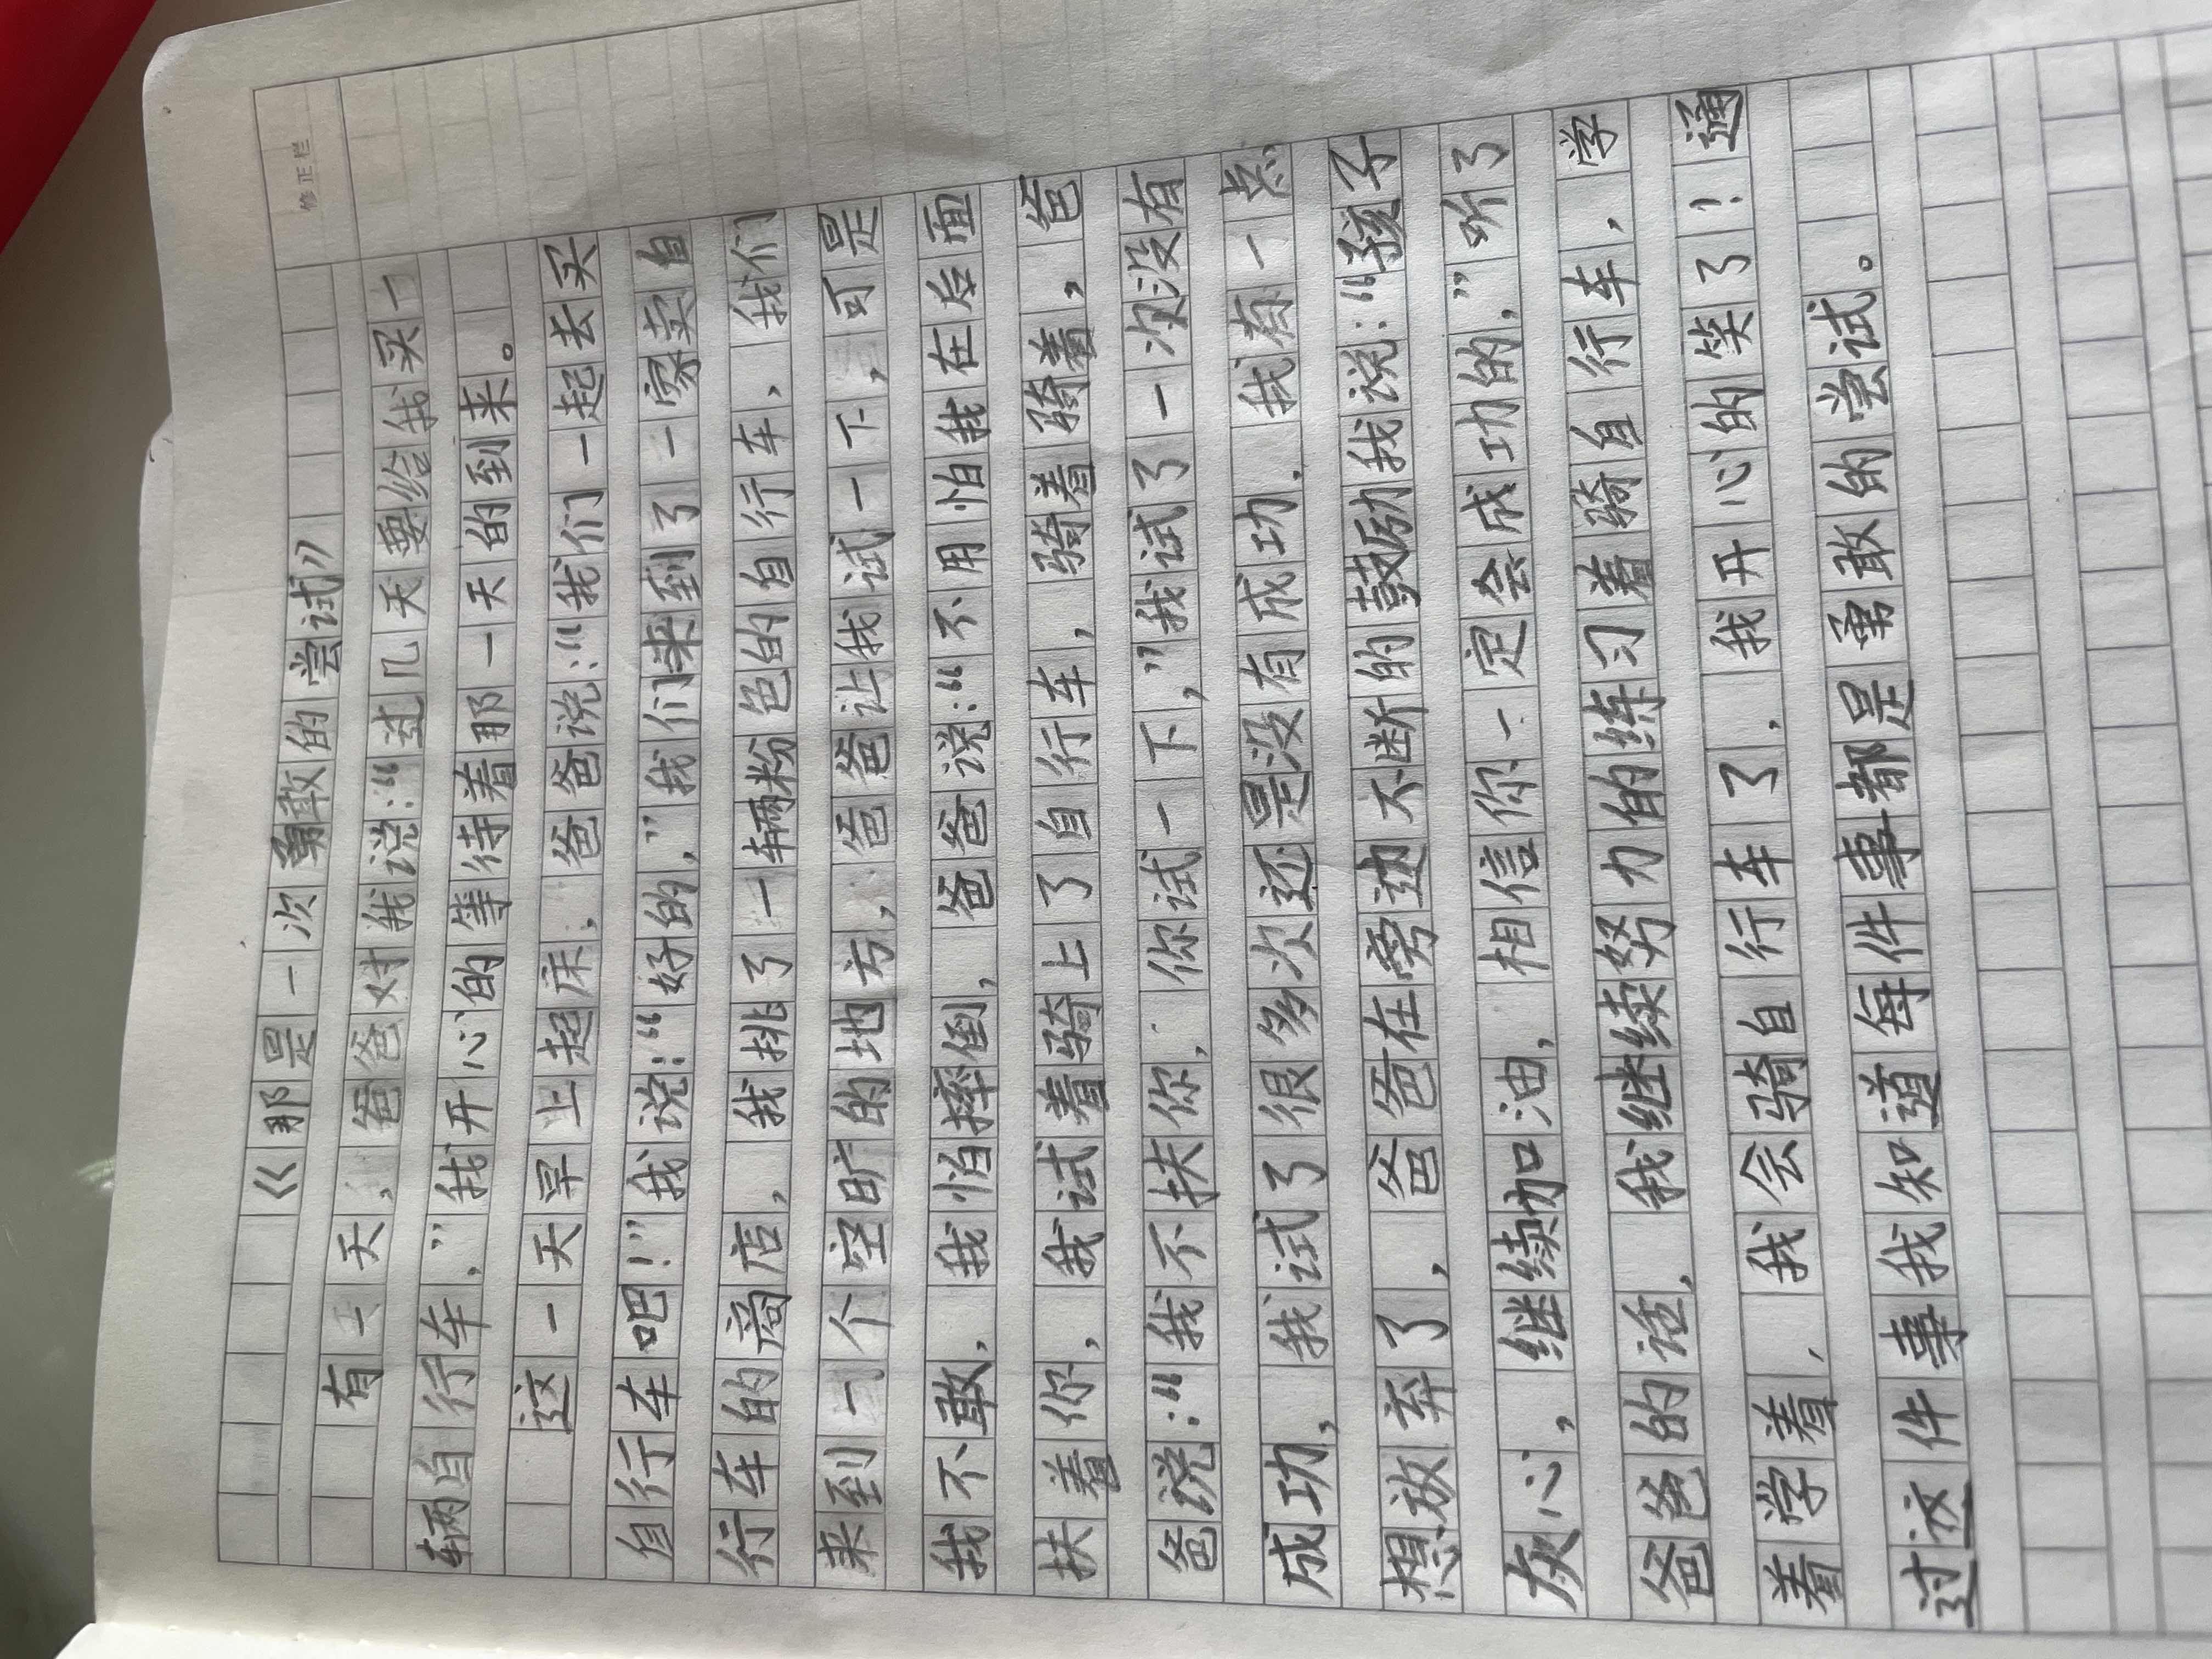 修正栏
《那是一次勇敢的尝试》
有一天，爸爸对我说：“过几天要给我买一
辆自行车，”我开心的等待着那一天的到来。
这一天早上起床，爸爸说：“我们一起去买
自行车吧！”我说：“好的，”我们来到了一家卖自
行车的商店，我挑了一辆粉色的自行车，我们
来到一个空旷的地方，爸爸让我试一下，可是
我不敢，我怕摔倒，爸爸说：“不用怕我在后面
扶着你，我试着骑上了自行车，骑着骑着，爸
爸说：“我不扶你，你试一下，”我试了一次没有
成功，我试了很多次还是没有成功，我有一点
想放弃了，爸爸在旁边不断的鼓励我说：“孩子
灰心，继续加油，相信你一定会成功的，”听了
爸爸的话，我继续努力的练习着骑自行车，学
着学着，我会骑自行车了，我开心的笑了！通
过这件事我知道每件事都是勇敢的尝试。